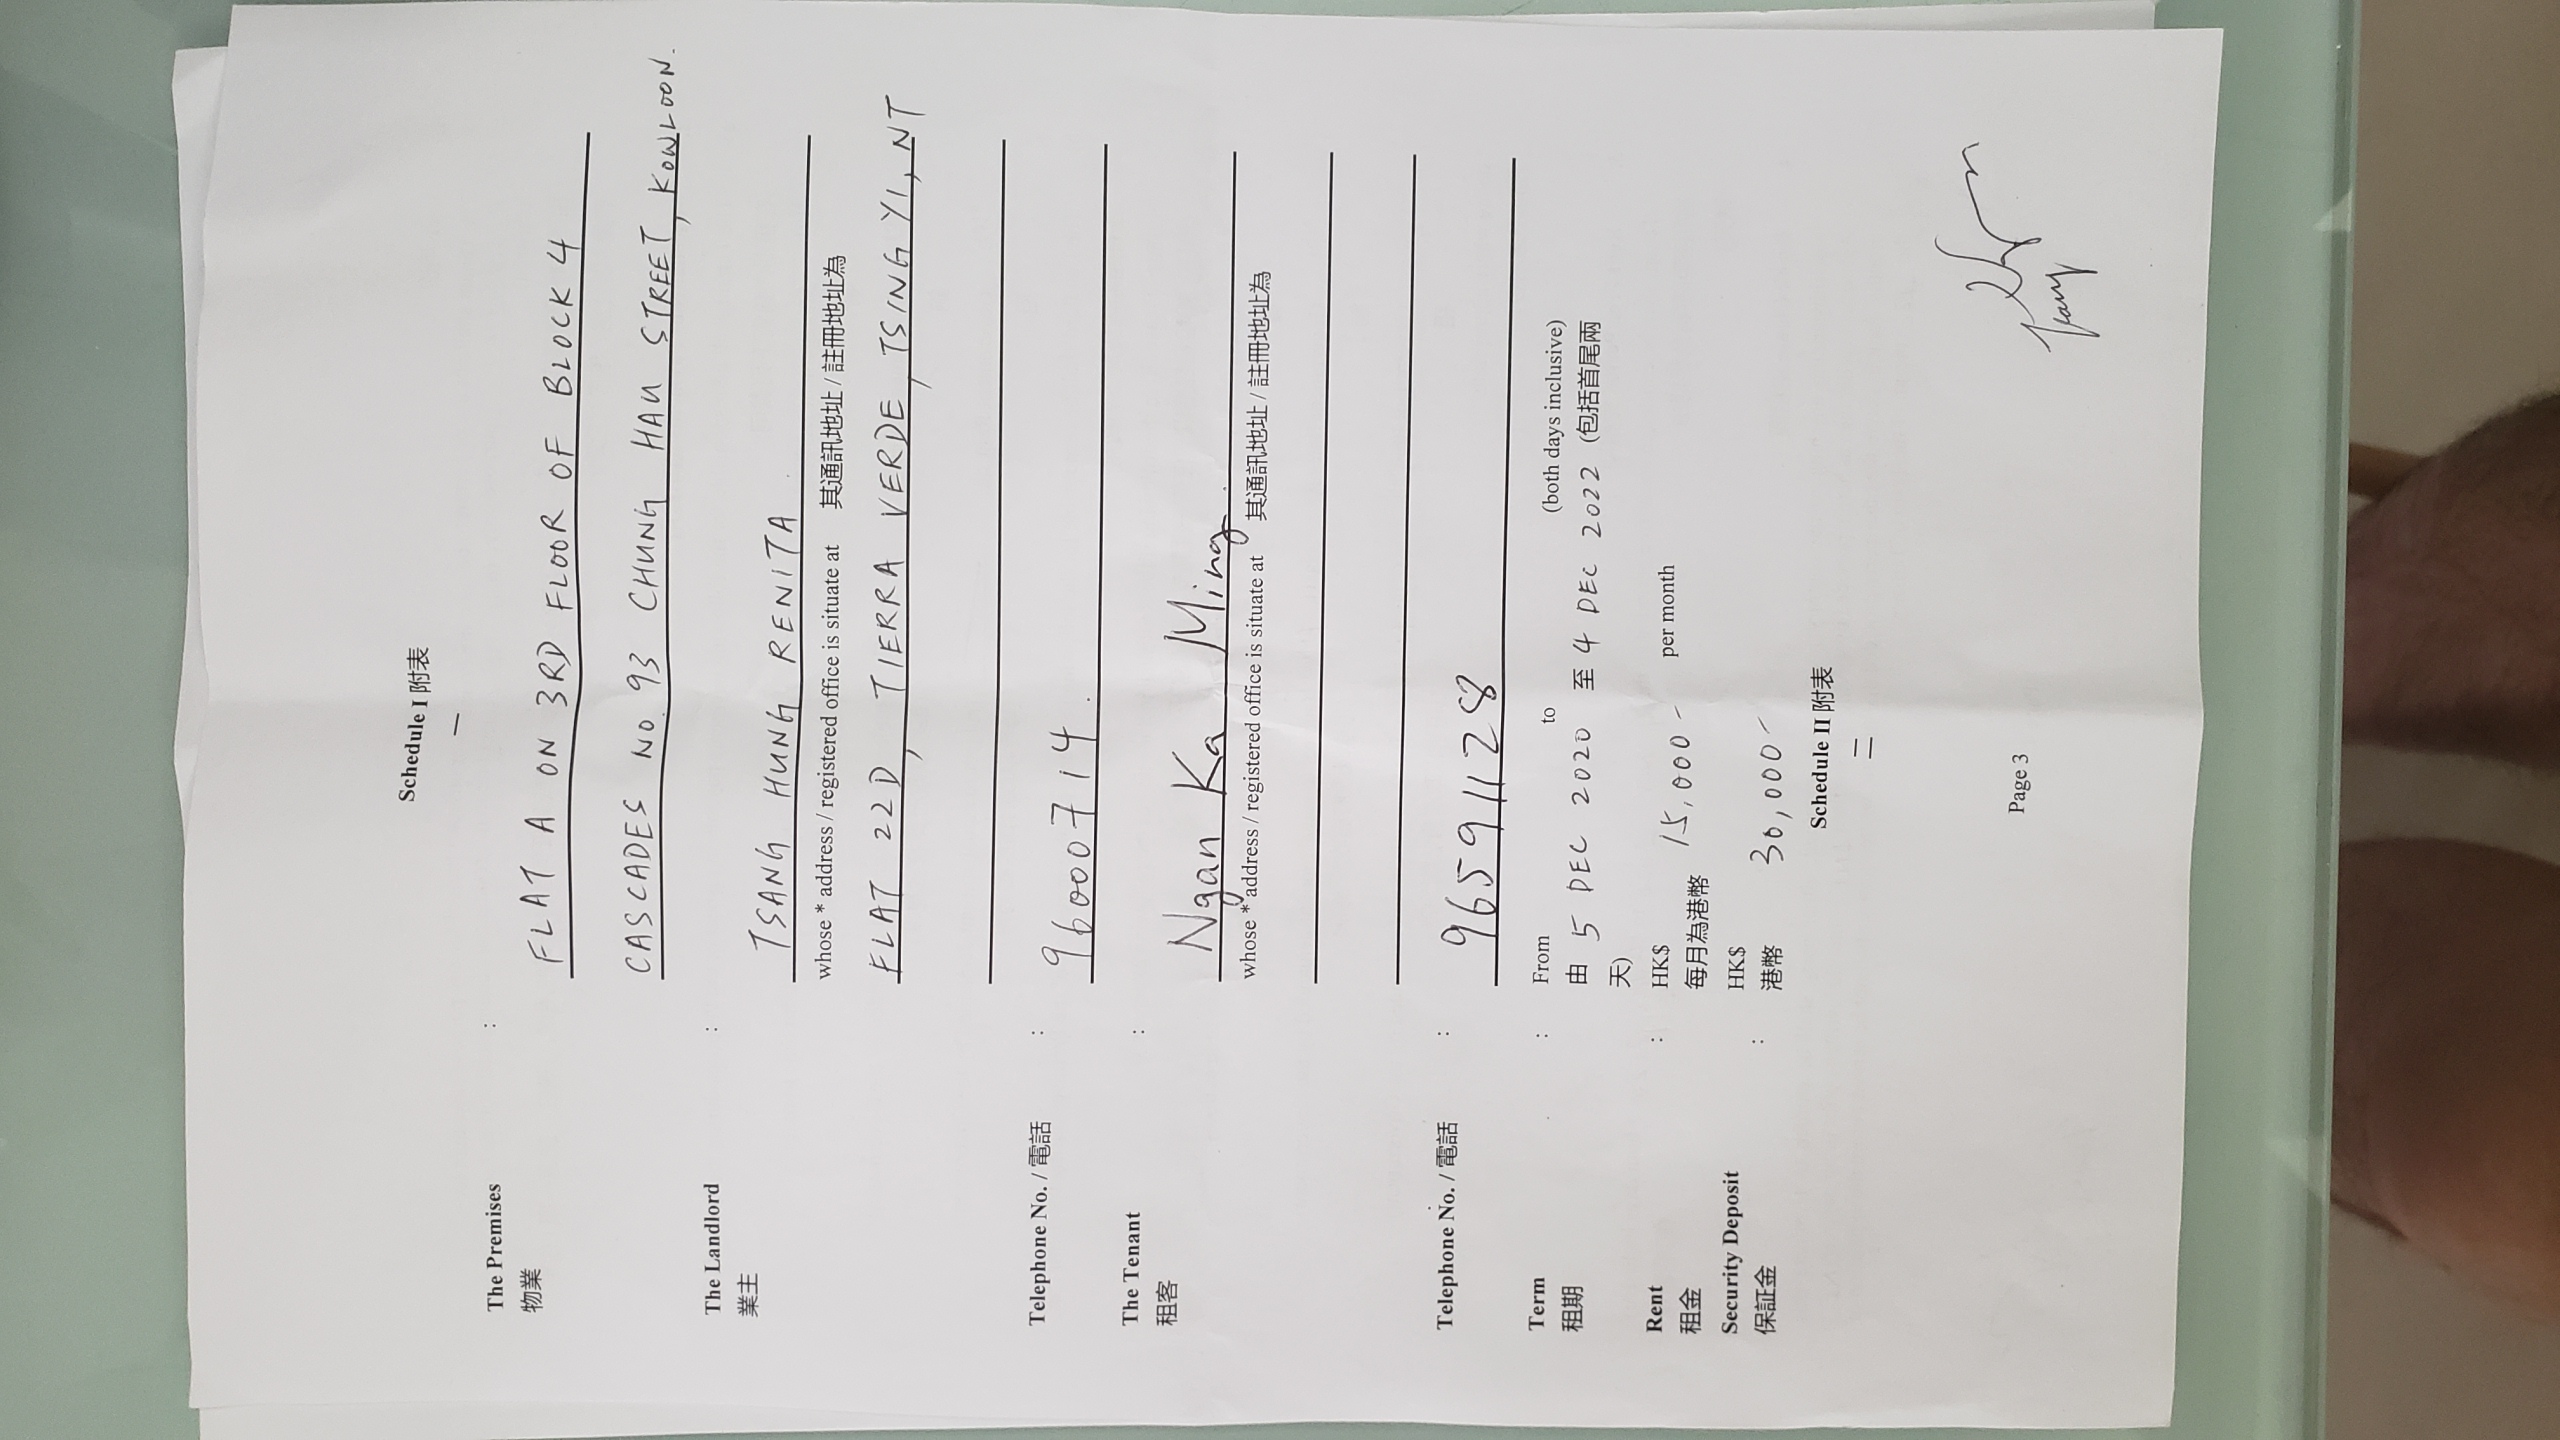 Schedule I 附表
一
The Premises : FLAT A ON 3RD FLOOR OF BLOCK 4
物業
CASCADES NO. 93 CHUNG HAU STREET, KOWLOON.
The Landlord :
業主 TSANG HUNG RENITA
whose * address / registered office is situate at 其通訊地址 / 註冊地址為
FLAT 22D, TIERRA VERDE, TSING YI, NT
Telephone No. / 電話 : 96000714
The Tenant :
租客 Ngan Ka Ming
whose * address / registered office is situate at 其通訊地址 / 註冊地址為
Telephone No. / 電話 : 96591128
Term : From to (both days inclusive)
租期 由 5 DEC 2020 至 4 DEC 2022 (包括首尾兩
天)
Rent : HK$ 15,000- per month
租金 每月為港幣
Security Deposit : HK$
保証金 港幣 30,000-
Schedule II 附表
二
Page 3